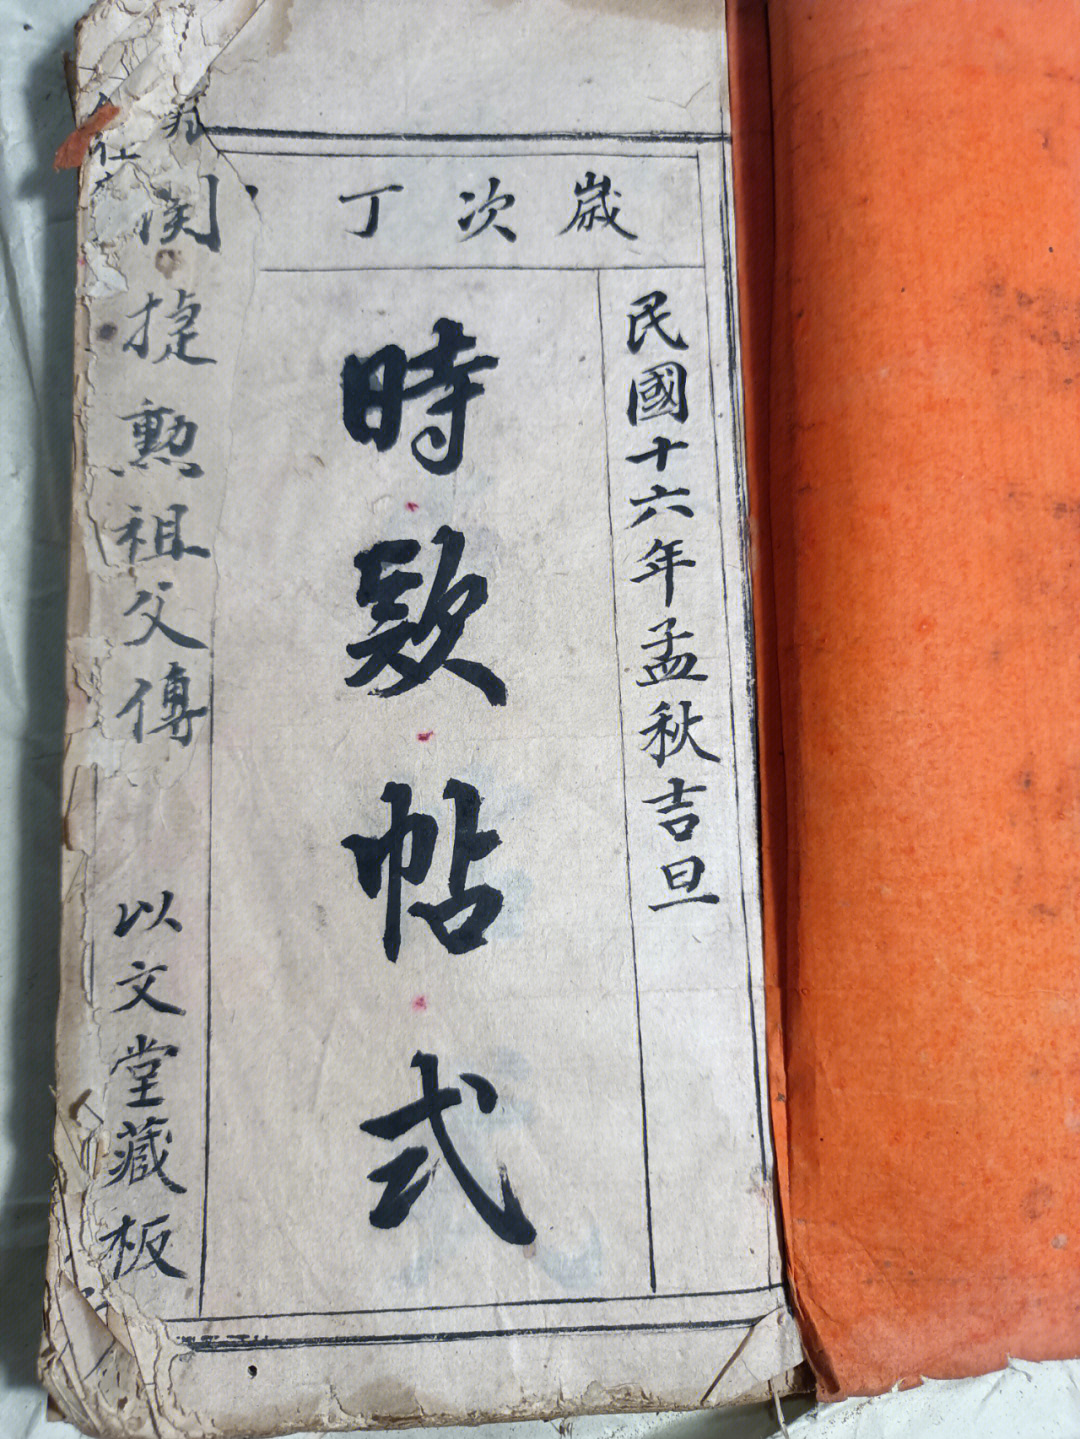 歲次丁
民國十六年孟秋吉旦
時款帖式
捷勳祖父傳
以文堂藏板